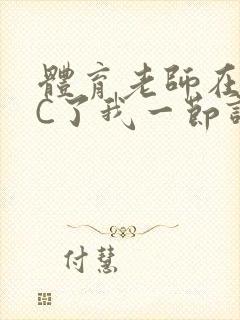 體育老師在
C了我一節
付慧